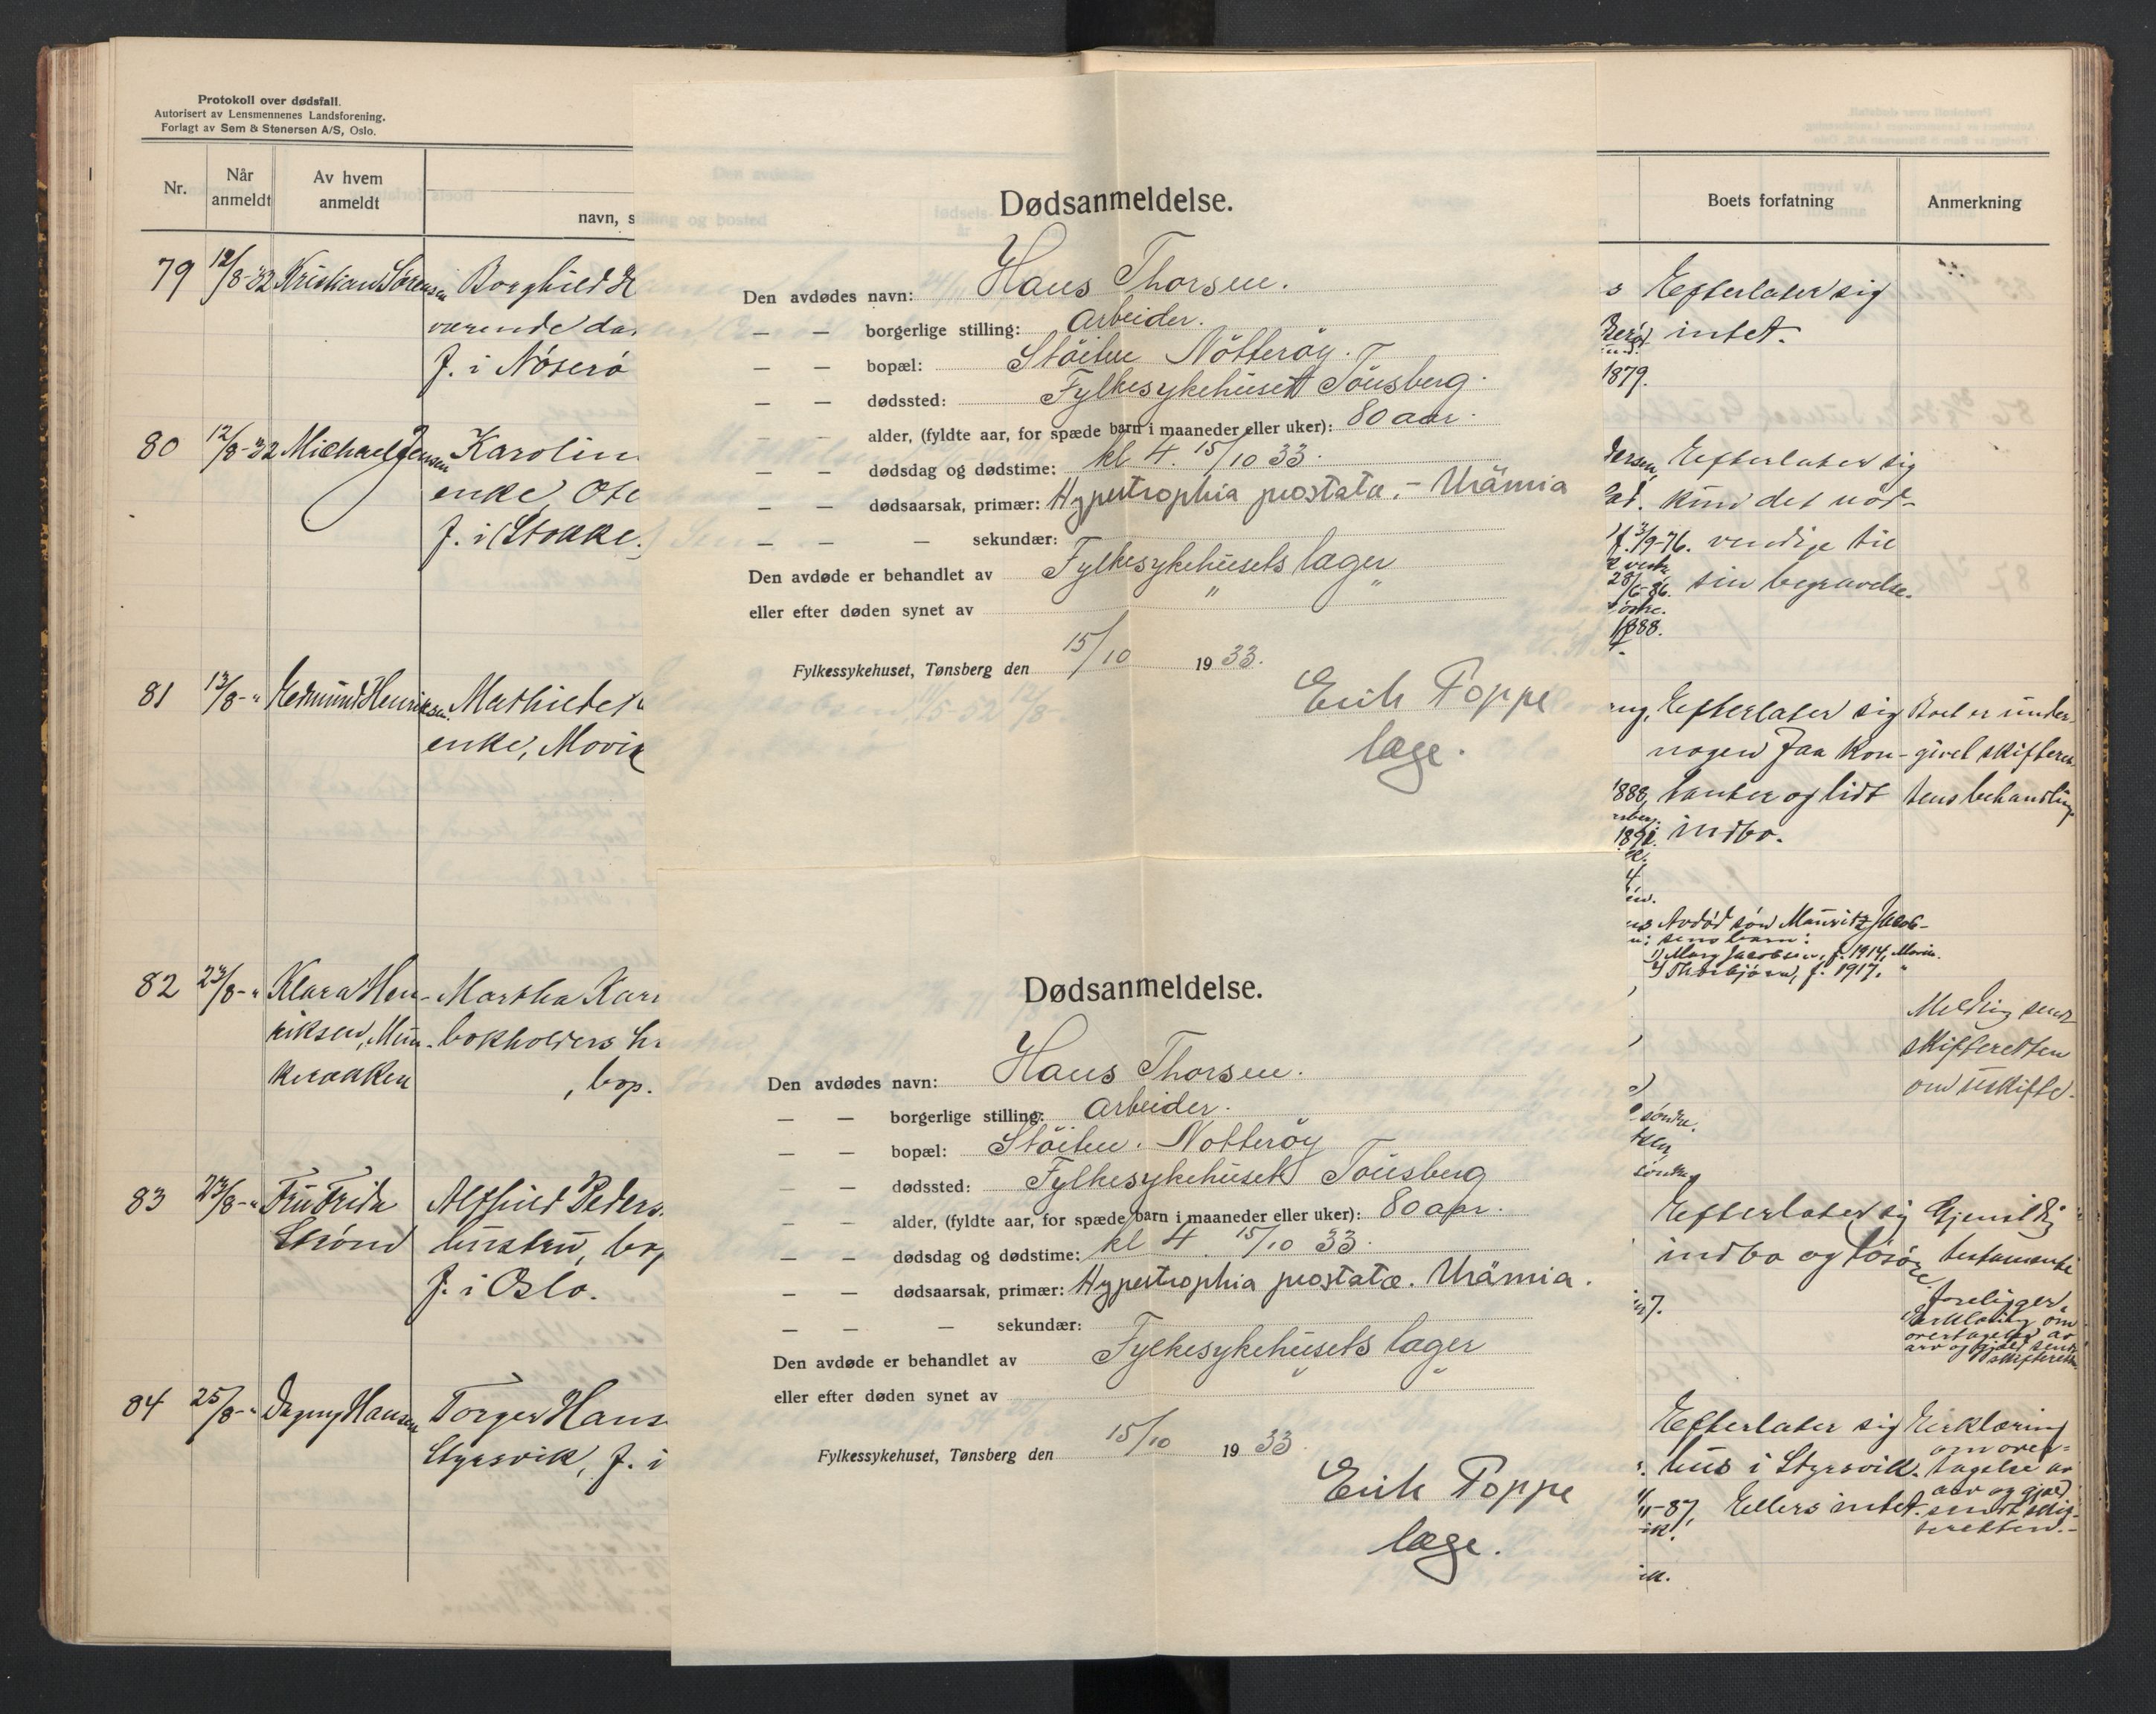 Protokoll over dødsfall.
Autorisert av Lensmennenes Landsforening.
Forlagt av Sem & Stenersen A/S, Oslo.
Nr.
Når anmeldt
Av hvem anmeldt
navn, s
79 12/8-32 Kristian Sørensen Borghild H
værende da
f. i Nøterø
80 12/8-32 Michael Jensen Karolin
enke,
f. i Stokke.
81 13/8-" Edmund Henriksen Mathilde
enke,
82 23/8-" Klara Hen- Martha Kar
riksen, bokholders h
, bop.
83 23/8-" Fru Frida Alfhild Peders
hustru, bop
f. i Oslo.
84 25/8-" Dagny Hansen Torger Hans
Styrsvik, f. i
Dødsanmeldelse.
Den avdødes navn: Hans Thorsen.
— — borgerlige stilling: Arbeider.
— — bopæl: Stöiten Nötteröy.
— — dødssted: Fylkesykehuset Tönsberg.
— — alder, (fyldte aar, for spæde barn i maaneder eller uker): 80 aar.
— — dødsdag og dødstime: kl 4. 15/10 33.
— — dødsaarsak, primær: Hypertrophia prostatæ. - Urämia
— — — sekundær:
Den avdøde er behandlet av Fylkesykehusets læger
eller efter døden synet av " "
Fylkessykehuset, Tønsberg den 15/10 1933.
Erik Poppe
læge.
Dødsanmeldelse.
Den avdødes navn: Hans Thorsen.
— — borgerlige stilling: Arbeider.
— — bopæl: Stöiten. Notteröy
— — dødssted: Fylkesykehuset Tönsberg
— — alder, (fyldte aar, for spæde barn i maaneder eller uker): 80 aar.
— — dødsdag og dødstime: kl 4. 15/10 33.
— — dødsaarsak, primær: Hypertrophia prostatæ. Urämia.
— — — sekundær:
Den avdøde er behandlet av Fylkesykehusets læger
eller efter døden synet av " "
Fylkessykehuset, Tønsberg den 15/10 1933
Erik Poppe
læge.
Boets forfatning
Anmerkning
Efterlater sig
intet.
1879.
dersen, Efterlater sig
kun det nød-
f. 3/9-76. vendige til
28/6-86. sin begravelse.
1888.
Efterlater sig Boet er under-
nogen faa kon- givet skifteret-
1888, tanter og lidt tens behandling
indbo.
Avdød søn Mauritz Jacob-
sens barn:
1) Mary Jacobsen, f. 1914,
2) Thorbjørn, f. 1917. "
Melding sendt
skifteretten
om uskifte.
søndre.
Efterlater sig Gjensidig
indbo og løsøre testamente
foreligger.
Erklæring om
overtagelse av
arv og gjæld sendt
skifteretten
Efterlater sig Erklæring
om over-
hus i Styrsvik. tagelse av
arv og gjæld
-87, Ellers intet. sendt skif-
teretten.-